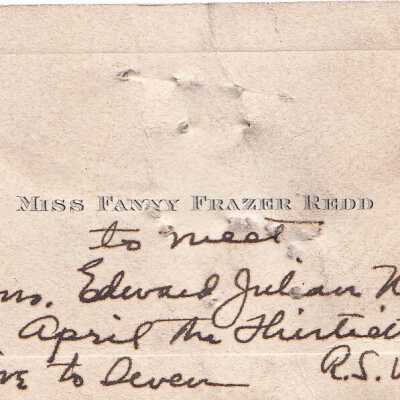 Miss Fanny Frazer Redd
to meet
Edward Julian
April the Thirtieth
to Seven R.S.V